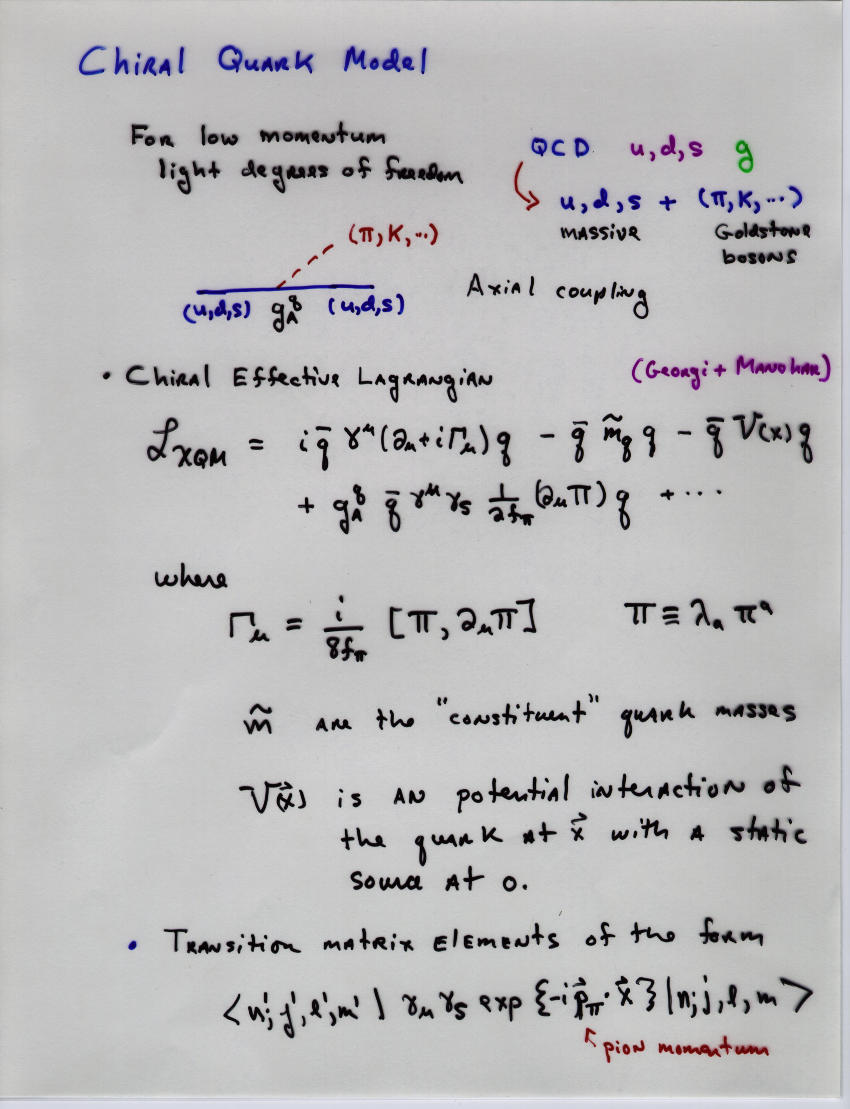 Chiral Quark Model
For low momentum
light degrees of freedom
QCD u,d,s g
u,d,s + (π,K,...)
massive Goldstone
bosons
(π,K,...)
(u,d,s) g_A^q (u,d,s)
Axial coupling
• Chiral Effective Lagrangian (Georgi + Manohar)
ℒ_χQM = i q̄ γ^μ (∂_μ + iΓ_μ) q − q̄ m̃_q q − q̄ V(x) q
+ g_A^q q̄ γ^μ γ_5 1/2f_π (∂_μ Π) q + ...
where
Γ_μ = i/8f_π [Π, ∂_μ Π] Π ≡ λ_a π^a
m̃ are the "constituent" quark masses
V(x⃗) is an potential interaction of
the quark at x⃗ with a static
source at 0.
• Transition matrix elements of the form
<n',j',l',m'| γ_μ γ_5 exp {-i p⃗_π · x⃗} |n,j,l,m>
pion momentum